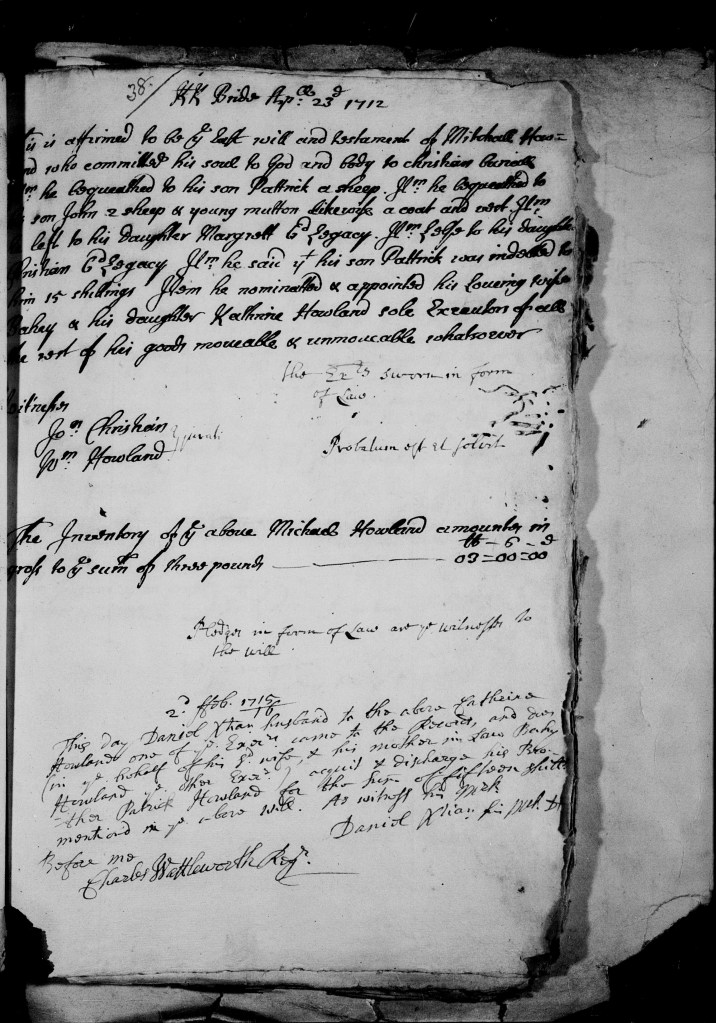 38.
KK Bride Apll: 23d 1712
is is affirmed to be ye Last will and testament of Mitchall How=
nd who committed his soul to God and body to christian buriall
m he bequeathed to his son Pattrick a sheep. Itm he bequeathed to
son John 2 sheep & young mutton likewise a coat and vest Itm
left to his daughter Margrett 6d Legacy. Itm Lefte to his daughte
hrishian 6d Legacy Itm he said yt his son Pattrick was indebted to
him 15 shillings Item he nominatted & appointed his Loveing wife
Bahey & his daughter Kathrine Howland sole Executors of all
e rest of his goods moveable & unmoveable whatsoever
the Exrs sworn in form
of Law.
witnesses
Jon Christian
Wm Howland
jurati
Probatum est et solvit
The Inventory of ye above Michael Howland amountes in
gross to ye sum of three pounds 03=00=00
Pledges in form of Law are ye witnesses to
the will
2d ffeb. 1715/16
This day Daniel Xtian husband to the above Catherine
Howland one of ye Exers. came to the Records, and does
(in ye behalf of his sd wife, & his mother in Law Bahy
Howland ye other Exer.) acquit & discharge his Bro=
ther Patrick Howland for the sum of fifteen shill:
mentiond in ye above will. As witness his mark
Daniel Xtian his mark
Before me
Charles Wattleworth Regr.